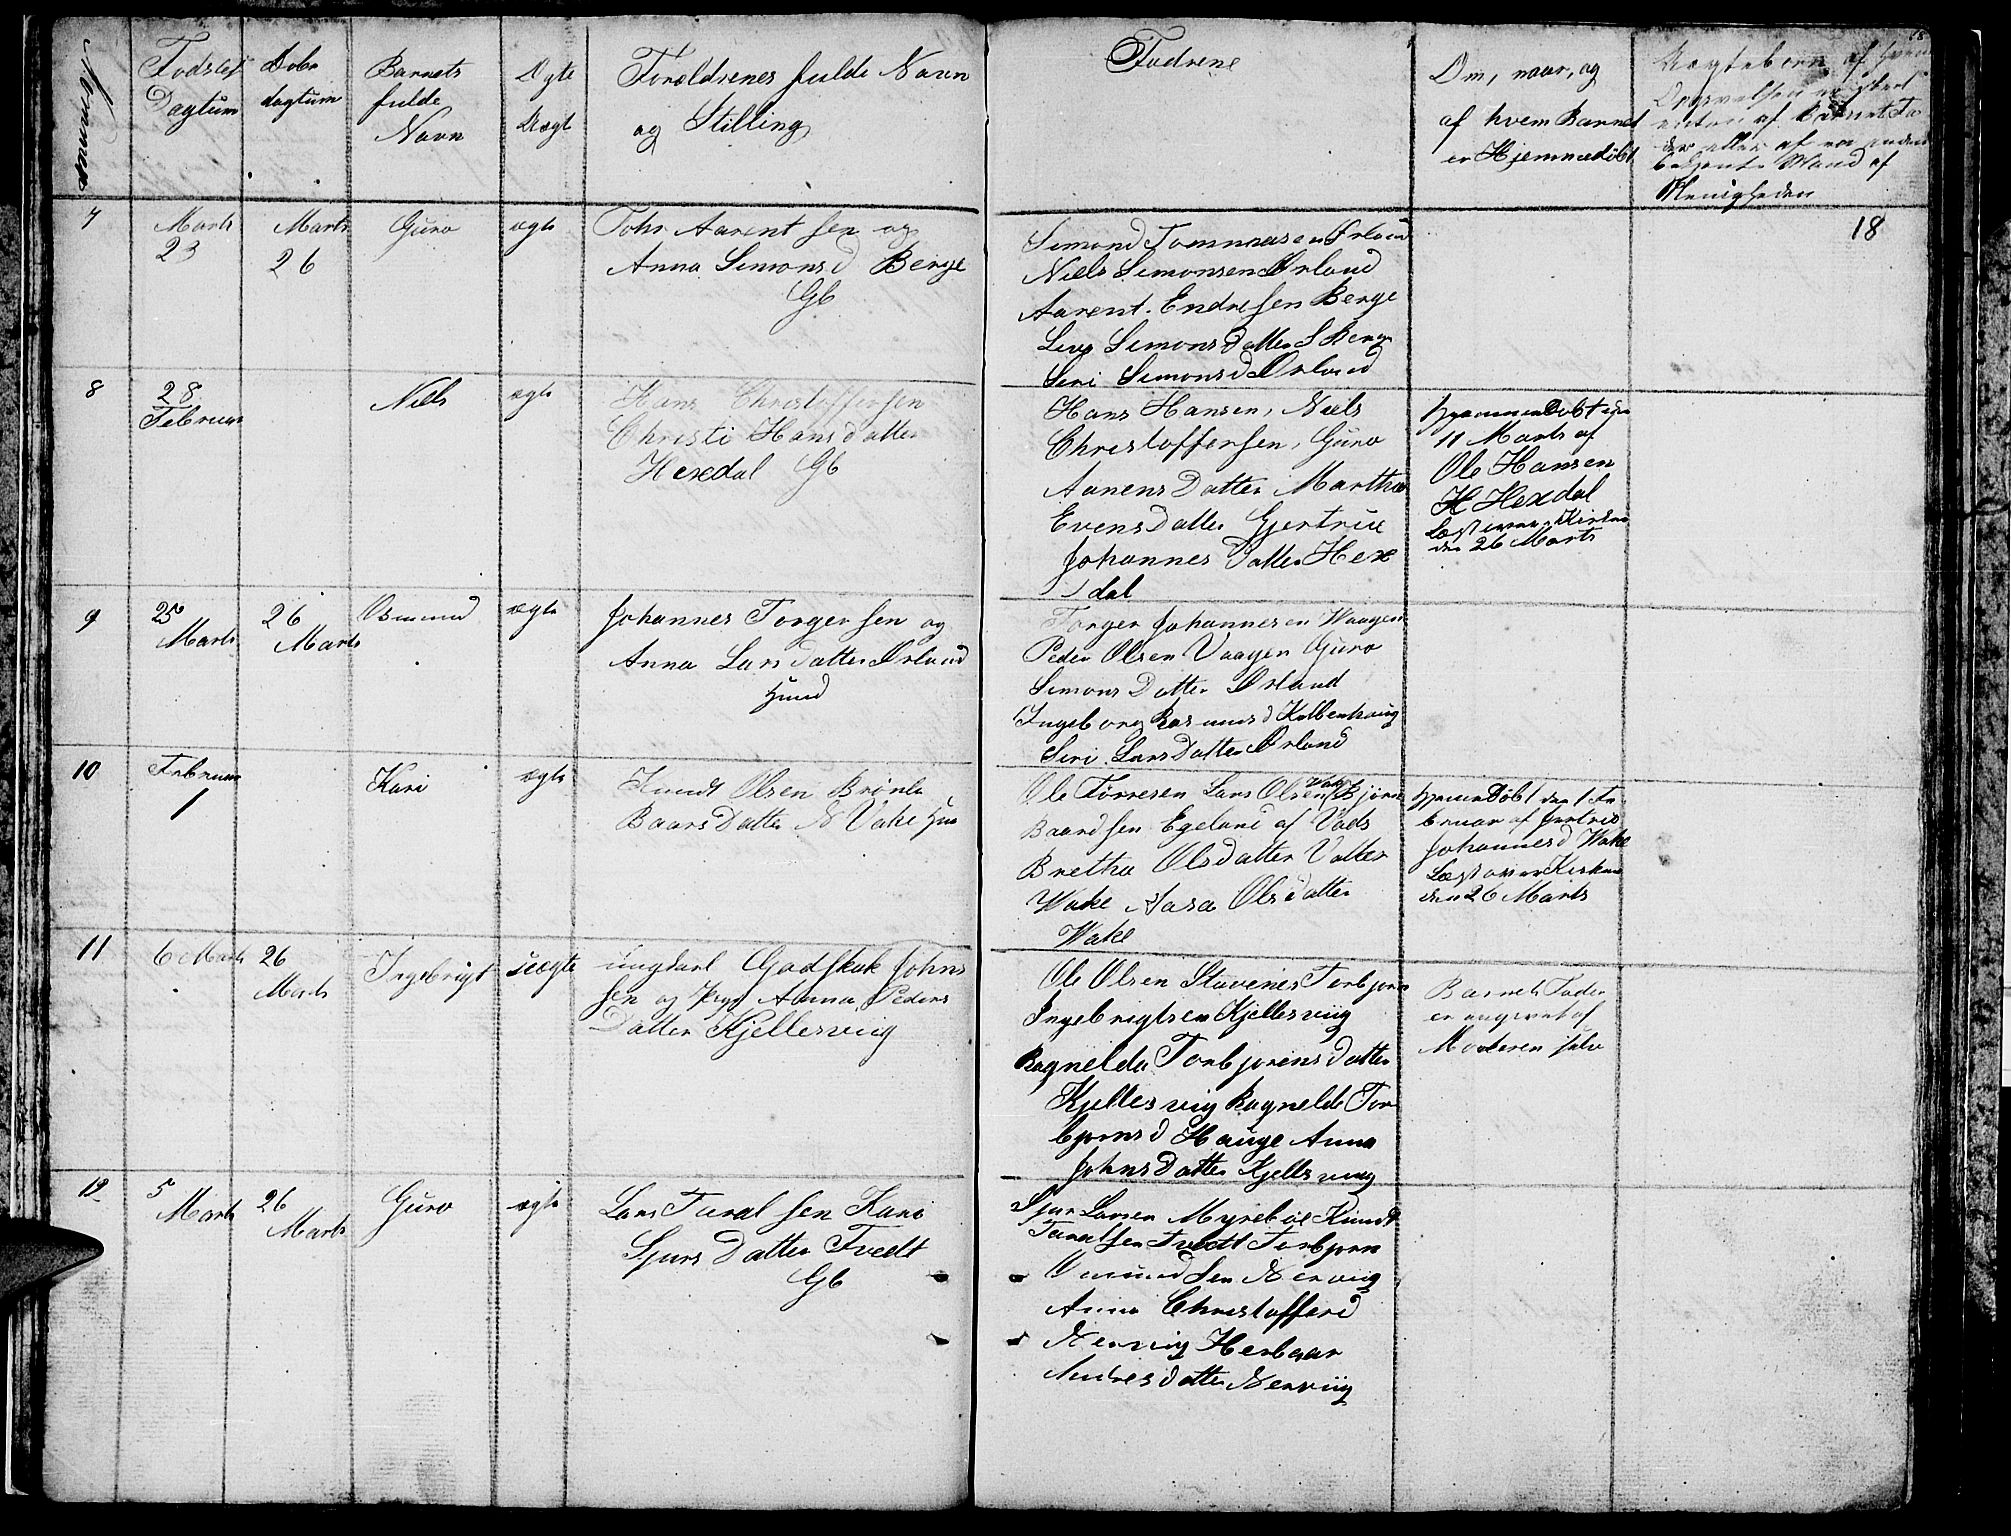 Nummer
Fødsels
Dagtum
Døbe
dagtum
Barnets
fulde
Navn
Ægte
Uægt
Foreldrenes fulde Navn
og Stilling
Fadrene
Om, naar, og
af hvem Barnet
er Hjemmedøbt
Uægtebørn af hvem
Opgivelsen er skeet
enten af Barnets Fa
der eller af en anden
bekjent Mand af
Menigheden
68
7
Marts
23
Marts
26
Guro
ægte
Tohr Aarent sen og
Anna Simonsd Berge
Gb
Simond Tommasen Ørland
Niels Simonsen Ørland
Aarent Endresen Berge
Live Simons datter S Berge
Seri Simonsd Ørland
18
8
28
Februar
Niels
ægte
Hans Christoffersen
Christi Hansdatter
Hexedal Gb
Hans Hansen, Niels
Christoffersen, Guro
Aanens Datter Martha
Evensdatter Gjertrue
Johannes Datter Hexe
dal
hjemmeDøbt den
11 Marts af
Ole Hansen
H Hexdal
Læst over i Kirken
den 26 Marts
9
25
Marts
26
Marts
Osmund
ægte
Johannes Torgersen og
Anna Lars datter Ørland
Huusd
Torger Johannesen Waagen
Peder Olsen Vaagen Guro
Simons Datter Ørland
Ingeborg Rasmusd Kolbenhaug
Seri Lars Datter Ørland
10
Februar
1
Kari
ægte
Knudt Olsen Brønla
Baars Datter N Vake Huu
Ole Tørresen Lars Olsen Vake Bjørn
Baardsen Egeland af Vads
Bretha Olsdatter Valler
Wake Aasa Olsdatter
Wake
hjemmeDøbt den 1 Fe
bruar af Gertrue
Johannesd Wake
Læst over i Kirken
den 26 Marts
11
6 Marts
26
Marts
Ingebrigt
uægte
ungkarl Godskalk Johns
sen og Pige Anna Peders
Datter Kjellesviig
Ole Olsen Stavenes Torbjørn
Ingebrigtsen Kjellesviig
Ragnelda Torbjørens datter
Kjellesvig Ragnelde Tor
bjørnsd Hauge Anna
Johns Datter Kjellsvuig
Barnets Fader
er angivet af
Moderen selv
12
5
Marts
26
Marts
Guro
ægte
Lars Taralsen Kari
Sjurs Datter Tvedt
Gb
Sjur Larsen Myrebøe Knudt
Taralsen Tvedt Torbjørn
Omundsen Nerviig
Anna Christofferd
Nerviig Herborr
Andres datter Nerviig